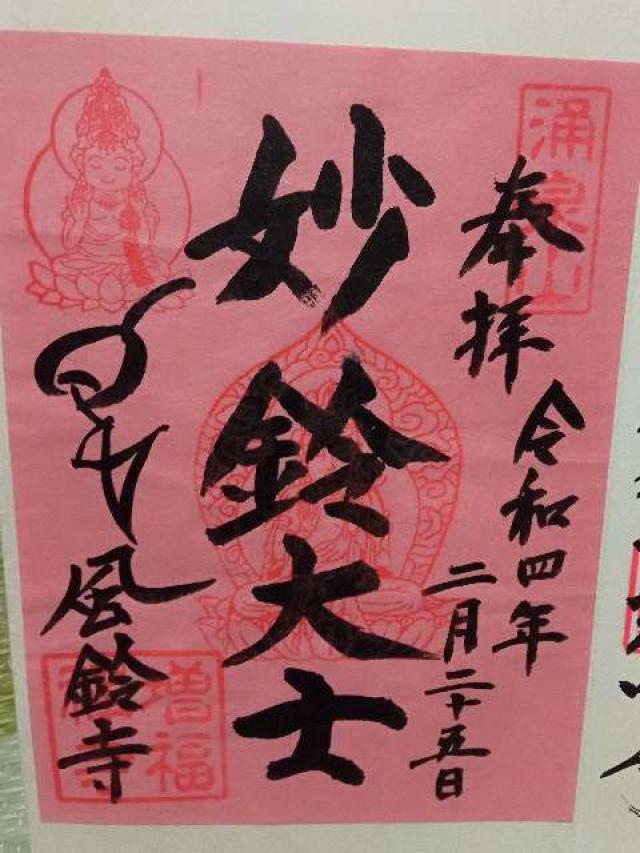 涌泉山
奉拝
令和四年
二月二十五日
妙鈴大士
風鈴寺
増福